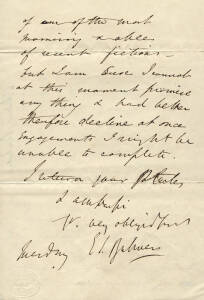 of one of the most
promising & ables
of recent fictions –
but I am Sure I cannot
at this moment promise
any thing & had better
therefore decline at once
Engagements I might be
unable to complete.
I return your
I am
Yr. very obliged
Tuesday E L